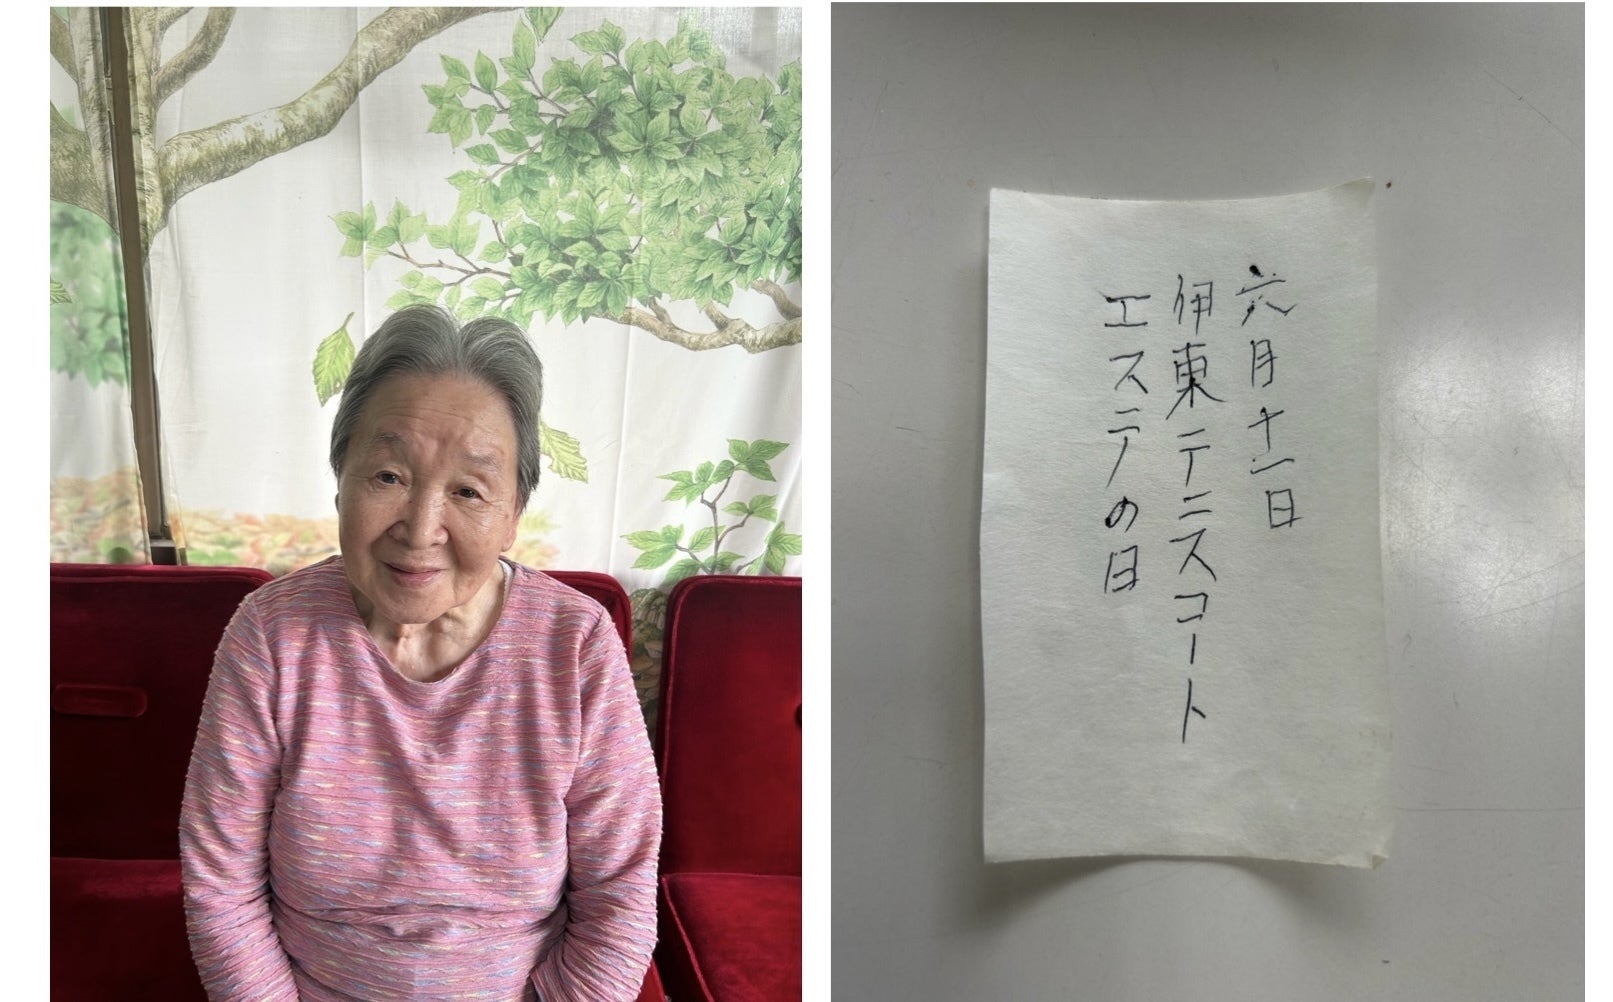 六月十一日
伊東テニスコート
エステの日